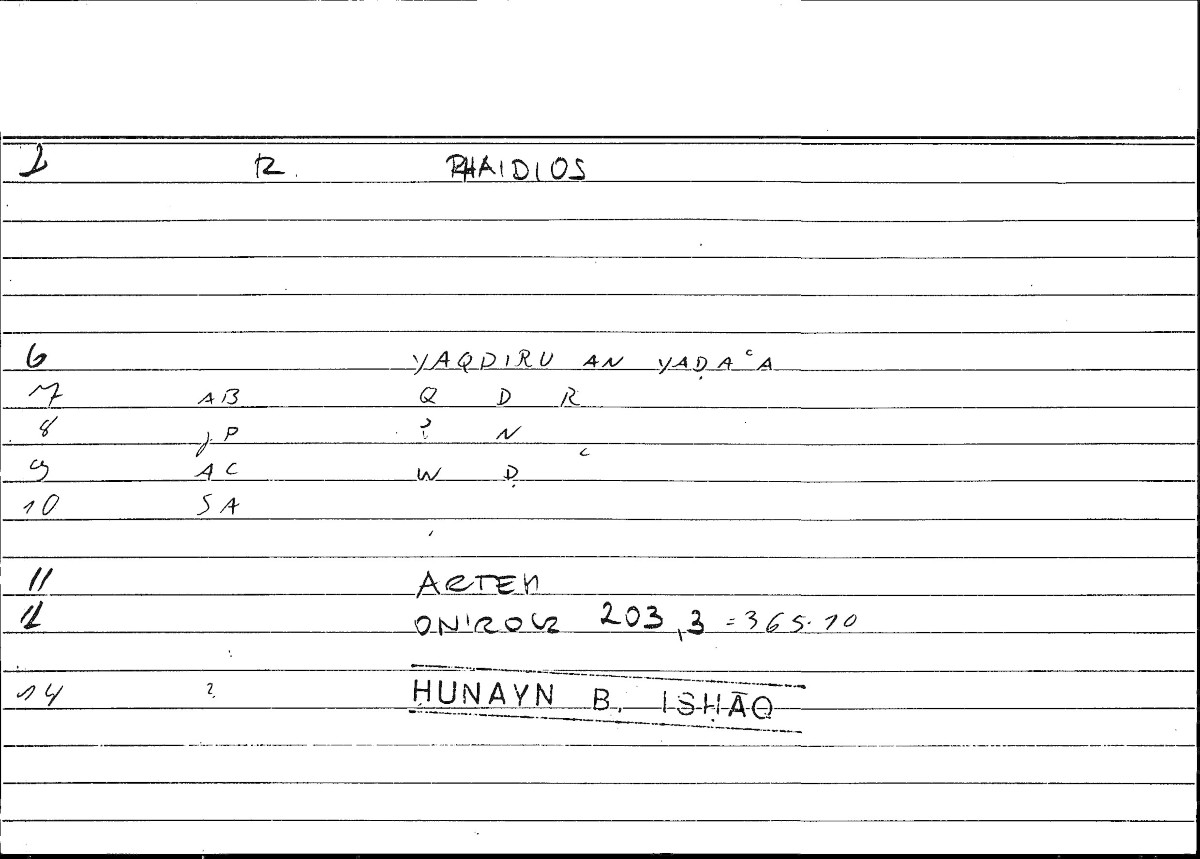 1 R. RHAIDIOS
6 YAQDIRU AN YAḌAʿA
7 AB Q D R
8 jP ʾ N
9 AC W Ḍ ʿ
10 SA
11 ARTEM
12 ONIROCR 203,3 = 365.10
14 ? ḤUNAYN B. ISḤĀQ